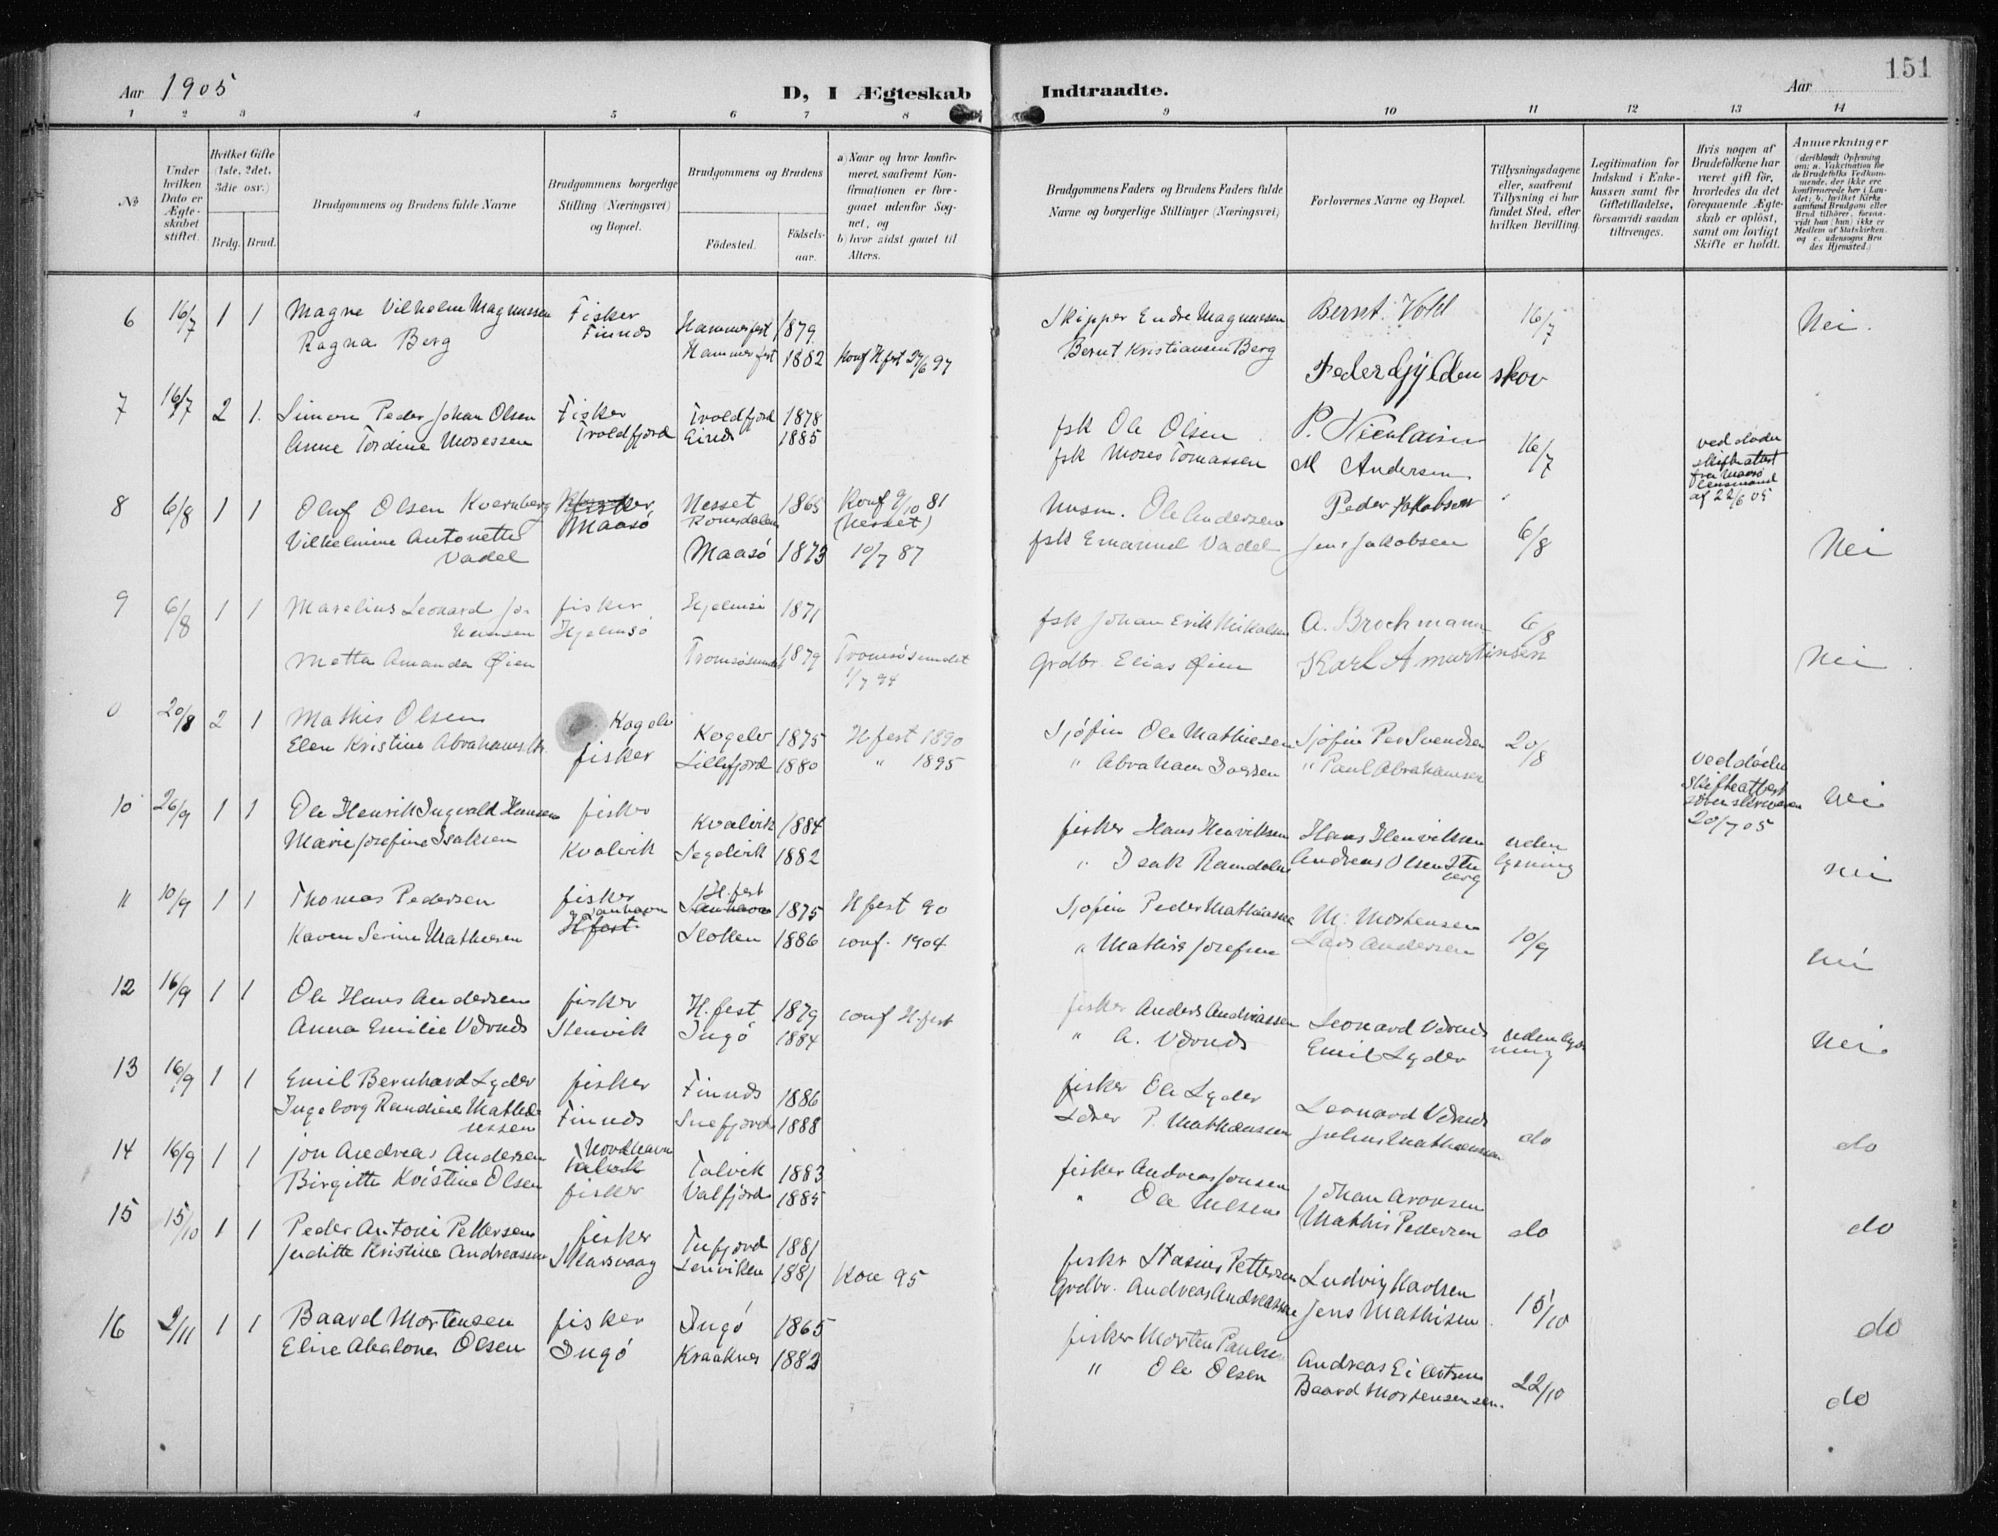 151
Aar 1905
D, I Ægteskab Indtraadte.
Aar
1 2 3 4 5 6 7 8 9 10 11 12 13 14
No
Under hvilken Dato er Ægteskabet stiftet.
Hvilket Gifte (1ste, 2det, 3die osr.)
Brdg. Brud.
Brudgommens og Brudens fulde Navne
Brudgommens borgerlige Stilling (Næringsvei) og Bopæl.
Brudgommens og Brudens
Fødested.
Fødselsaar.
a) Naar og hvor konfirmeret, saafremt Konfirmationen er foregaaet udenfor Sognet, og
b) hvor sidst gaaet til Alters.
Brudgommens Faders og Brudens Faders fulde Navne og borgerlige Stillinger (Næringsvei)
Forlovernes Navne og Bopæl.
Tillysningsdagene eller, saafremt Tillysning ei har fundet Sted, efter hvilken Bevilling.
Legitimation for Indskud i Enkekassen samt for Giftetilladelse, forsaavidt saadan tiltrænges.
Hvis nogen af Brudefolkene har været gift før, hvorledes da det foregaaende Ægteskab er opløst, samt om lovligt Skifte er holdt.
Anmerkninger
(deriblandt Oplysning om: a. Vakcination for de Brudefolks Vedkommende, der ikke ere konfirmerede her i Landet; b. hvilket Kirkesamfund Brudgom eller Brud tilhører, forsaavidt han (hun) ikke er Medlem af Statskirken, og c. udensogns Brudes Hjemsted.)
6 16/7 1 1 Magne Vilhelm Magnussen Fisker Hammerfest 1879 Skipper Endre Magnussen Bernt Vold 16/7 Nei.
Ragna Berg Finnæs Hammerfest 1882 Konf Hfest 27/6 97 Bernt Kristiansen Berg
Peder Gyldenskov
7 16/7 2 1. Simon Peder Johan Olsen Fisker Troldfjord 1878 fsk Ole Olsen P. Nicolaisen
Anne Tordine Mosessen Troldfjord 1885 fsk Moses Tomassen M Andersen 16/7 ved døden skifteattest fra Maasø lensmand af 22/6 05
8 6/8 1 1 Oluf Olsen Kvernberg Fisker Nesset Romsdalen 1865 Konf 9/10 81 (Nesset) Husm. Ole Andersen Peder Jakobsen
Vilhelmine Antonette Vadel Maasø Maasø 1873 10/7 87 fsk Emanuel Vadel Jens Jakobsen 6/8 Nei
9 6/8 1 1 Marelius Leonard Johannsen fisker Hjelmsø 1871 fsk Johan Erik Nikolaisen A. Brochmann 6/8
Metta Amanda Øien Hjelmsø Tromsøsundet 1879 Tromsøsundet 1/7 94 Grdbr. Elias Øien Karl A Martinsen Nei
0 20/8 2 1 Mathis Olsen Kogelv Kogelv 1875 Hfest 1890 Sjøfin Ole Mathiesen Sjøfin Per Svendsen 20/8
Elen Kristine Abrahams. fisker Lillefjord 1880 " 1895 " Abraham " Paul Abrahamsen ved døden skifteattest 20/7 05 Nei
10 26/9 1 1 Ole Henrik Ingvald Hansen fisker Kvalvik 1884 fisker Hans Henriksen Hans Henriksen uden lysning
Marie Josefine Isaksen Kvalvik Segelvik 1882 " Isak Andreas Olsen Nei
11 10/9 1 1 Thomas Pedersen fisker H.fest 1875 Hfest 90 Sjøfin Peder Mathiassen M. Mortensen
Karen Serine Mathiesen Hfest. 1886 conf. 1904 " Mathis Josefsen Lars Andersen 10/9 Nei
12 16/9 1 1 Ole Hans Andersen fisker H.fest 1879 conf H.fest fisker Anders Andreassen Leonard Værnæs uden lysning
Anna Emilie Værnæs Stenvik Ingø 1884 " A. Værnæs Emil Lyder Nei
13 16/9 1 1 Emil Bernhard Lyder fisker Finnæs 1886 fisker Ole Lyder Leonard Værnæs
Ingeborg Randine Mathæussen Finnæs Snefjord 1888 Lærer P. Mathæussen Julius Mathæussen do do
14 16/9 1 1 Jon Andreas Andersen Nordhavn Talvik Talvik 1883 fisker Andreas Jonsen Johan Aronsen
Birgitte Kristine Olsen fisker Valfjord 1885 " Ole Nilsen Mathis Pedersen do do
15 15/10 1 1 Peder Antoni Pettersen fisker Tufjord 1881 fisker Stasius Pettersen Ludvig Karlsen
Juditte Kristine Andreassen Skarsvaag Lenviken 1881 Kon 95 Grdbr. Andreas Andreassen Jens Mathisen 15/10 do
16 2/11 1 1 Baard Mortensen fisker Ingø 1865 fisker Morten Paulsen Andreas
Elise Abalone Olsen Ingø Kraaknes 1882 " Ole Olsen Baard Mortensensen. 22/10 do